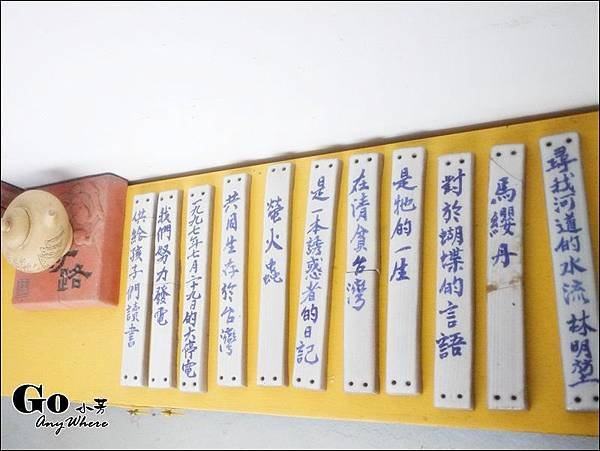 尋找河道的水流 林明堃
馬纓丹
對於蝴蝶的言語
是牠的一生
在清貧台灣
是一本誘惑者的日記
螢火蟲
共同生存於台灣
一九九七年七月二十九日的大停電
我們努力發電
供給孩子們讀書
路
Go 小芳
AnyWhere